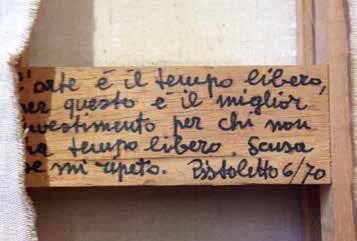 'arte è il tempo libero,
per questo è il miglior
nvestimento per chi non
ha tempo libero. Scusa
se mi ripeto. Pistoletto 6/70